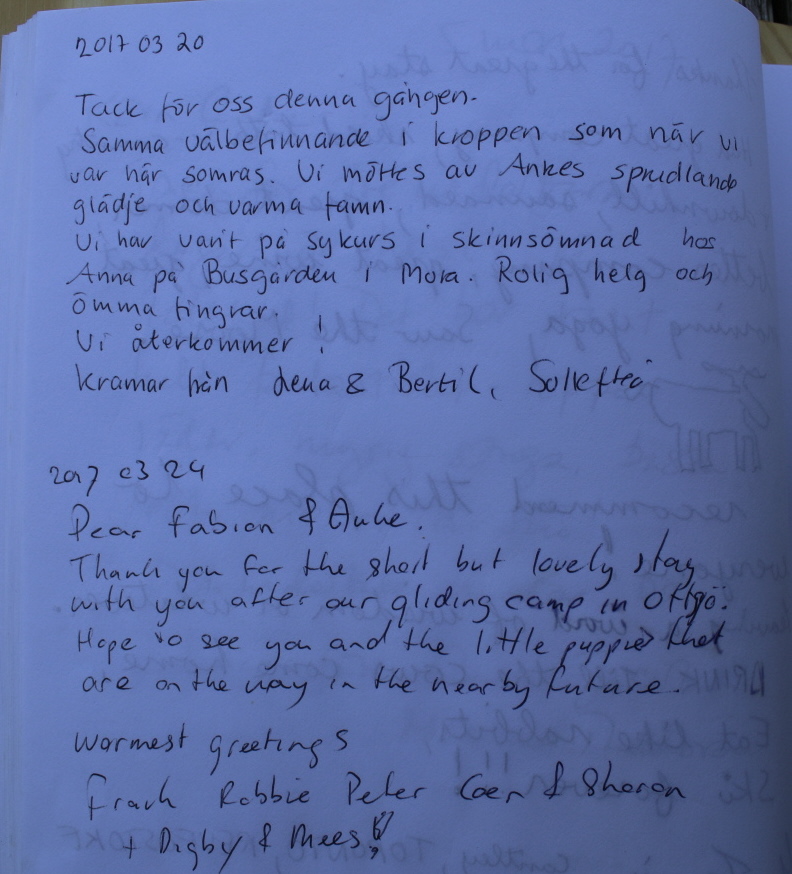 2017 03 20
Tack för oss denna gången.
Samma välbefinnande i kroppen som när vi
var här somras. Vi möttes av Ankes sprudlande
glädje och varma famn.
Vi har varit på sykurs i skinnsömnad hos
Anna på Busgården i Mora. Rolig helg och
ömma fingrar.
Vi återkommer!
Kramar från Lena & Bertil, Sollefteå
2017 03 24
Dear Fabian & Anke.
Thank you for the short but lovely stay
with you after our gliding camp in Ottsjö.
Hope to see you and the little puppies that
are on the way in the nearby future.
Warmest greetings
Frank Robbie Peter Coen & Sharon
+ Digby & Mees!